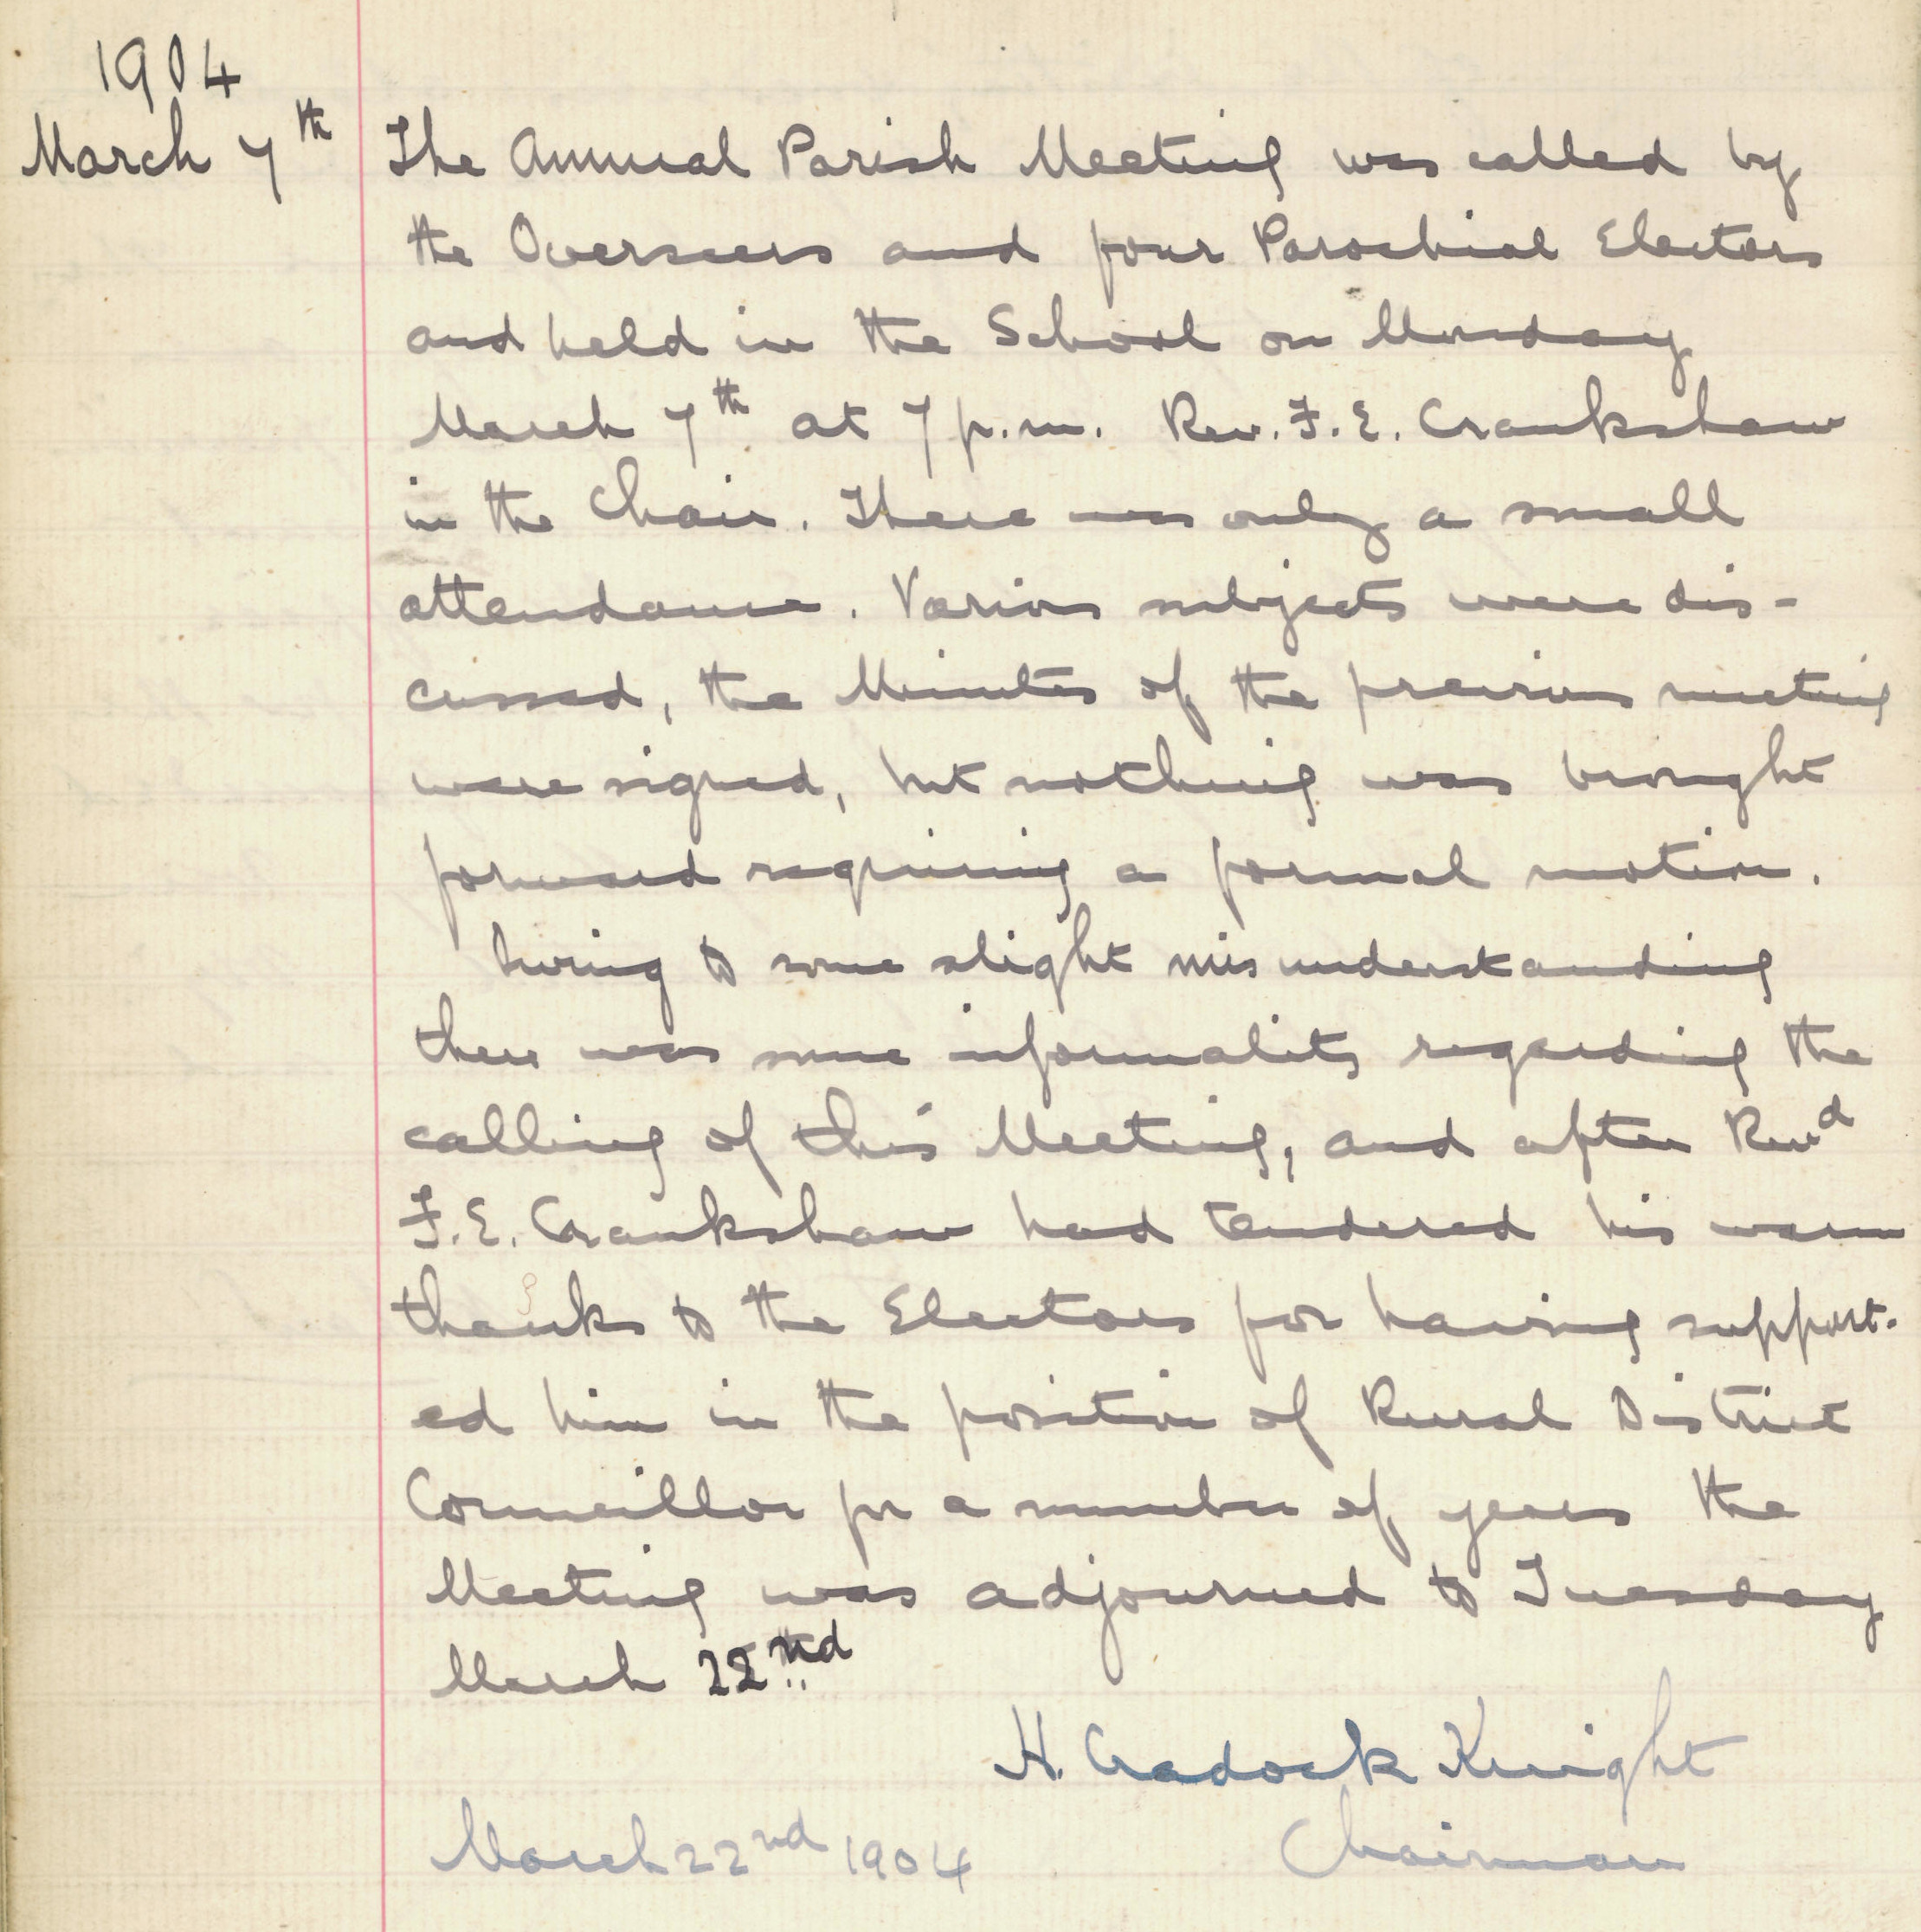 1904
March 7th The Annual Parish Meeting was called by
the Overseers and four Parochial Electors
and held in the School on Monday
March 7th at 7 p.m. Rev. F. E. Crankshaw
in the Chair. There was only a small
attendance. Various subjects were dis-
cussed, the Minutes of the previous meeting
were signed, but nothing was brought
forward requiring a formal motion.
Owing to some slight misunderstanding
there was some informality regarding the
calling of this Meeting, and after Revd
F. E. Crankshaw had tendered his warm
thanks to the Electors for having support-
ed him in the position of Rural District
Councillor for a number of years the
Meeting was adjourned to Tuesday
March 22nd
H. Cradock Knight
March 22nd 1904 Chairman